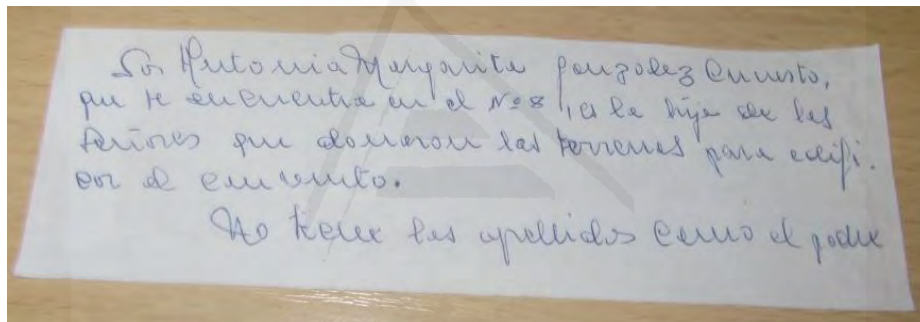 Sor Antonia Margarita Gonzalez
que se encuentra en el Nº 8, es la hija de los
señores que donaron los terrenos para edifi-
car el convento.
No tiene los apellidos como el padre